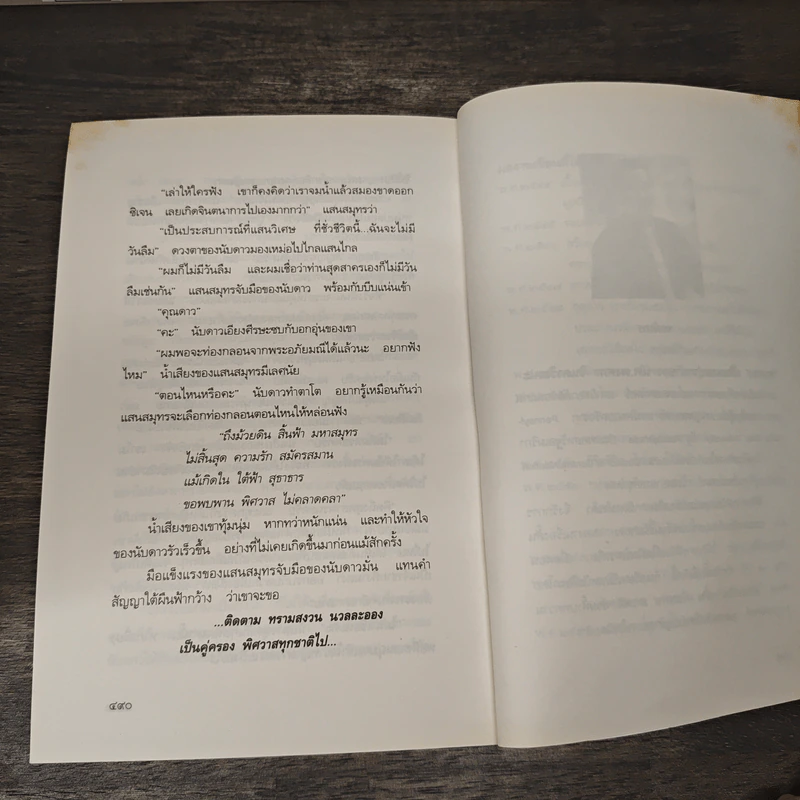 “เล่าให้ใครฟัง เขาก็คงคิดว่าเราจมน้ำแล้วสมองขาดออก
ซิเจน เลยเกิดจินตนาการไปเองมากกว่า” แสนสมุทรว่า
“เป็นประสบการณ์ที่แสนวิเศษ ที่ชั่วชีวิตนี้...ฉันจะไม่มี
วันลืม” ดวงตาของนับดาวมองเหม่อไปไกลแสนไกล
“ผมก็ไม่มีวันลืม และผมเชื่อว่าท่านสุดสาครเองก็ไม่มีวัน
ลืมเช่นกัน” แสนสมุทรจับมือของนับดาว พร้อมกับบีบแน่นเข้า
“คุณดาว”
“คะ” นับดาวเอียงศีรษะซบกับอกอุ่นของเขา
“ผมพอจะท่องกลอนจากพระอภัยมณีได้แล้วนะ อยากฟัง
ไหม” น้ำเสียงของแสนสมุทรมีเลศนัย
“ตอนไหนหรือคะ” นับดาวทำตาโต อยากรู้เหมือนกันว่า
แสนสมุทรจะเลือกท่องกลอนตอนไหนให้หล่อนฟัง
“ถึงม้วยดิน สิ้นฟ้า มหาสมุทร
ไม่สิ้นสุด ความรัก สมัครสมาน
แม้เกิดใน ใต้ฟ้า สุธาธาร
ขอพบพาน พิศวาส ไม่คลาดคลา”
น้ำเสียงของเขาทุ้มนุ่ม หากทว่าหนักแน่น และทำให้หัวใจ
ของนับดาวรัวเร็วขึ้น อย่างที่ไม่เคยเกิดขึ้นมาก่อนแม้สักครั้ง
มือแข็งแรงของแสนสมุทรจับมือของนับดาวมั่น แทนคำ
สัญญาใต้ผืนฟ้ากว้าง ว่าเขาจะขอ
...ติดตาม ทรามสงวน นวลละออง
เป็นคู่ครอง พิศวาสทุกชาติไป...
๔๙๐